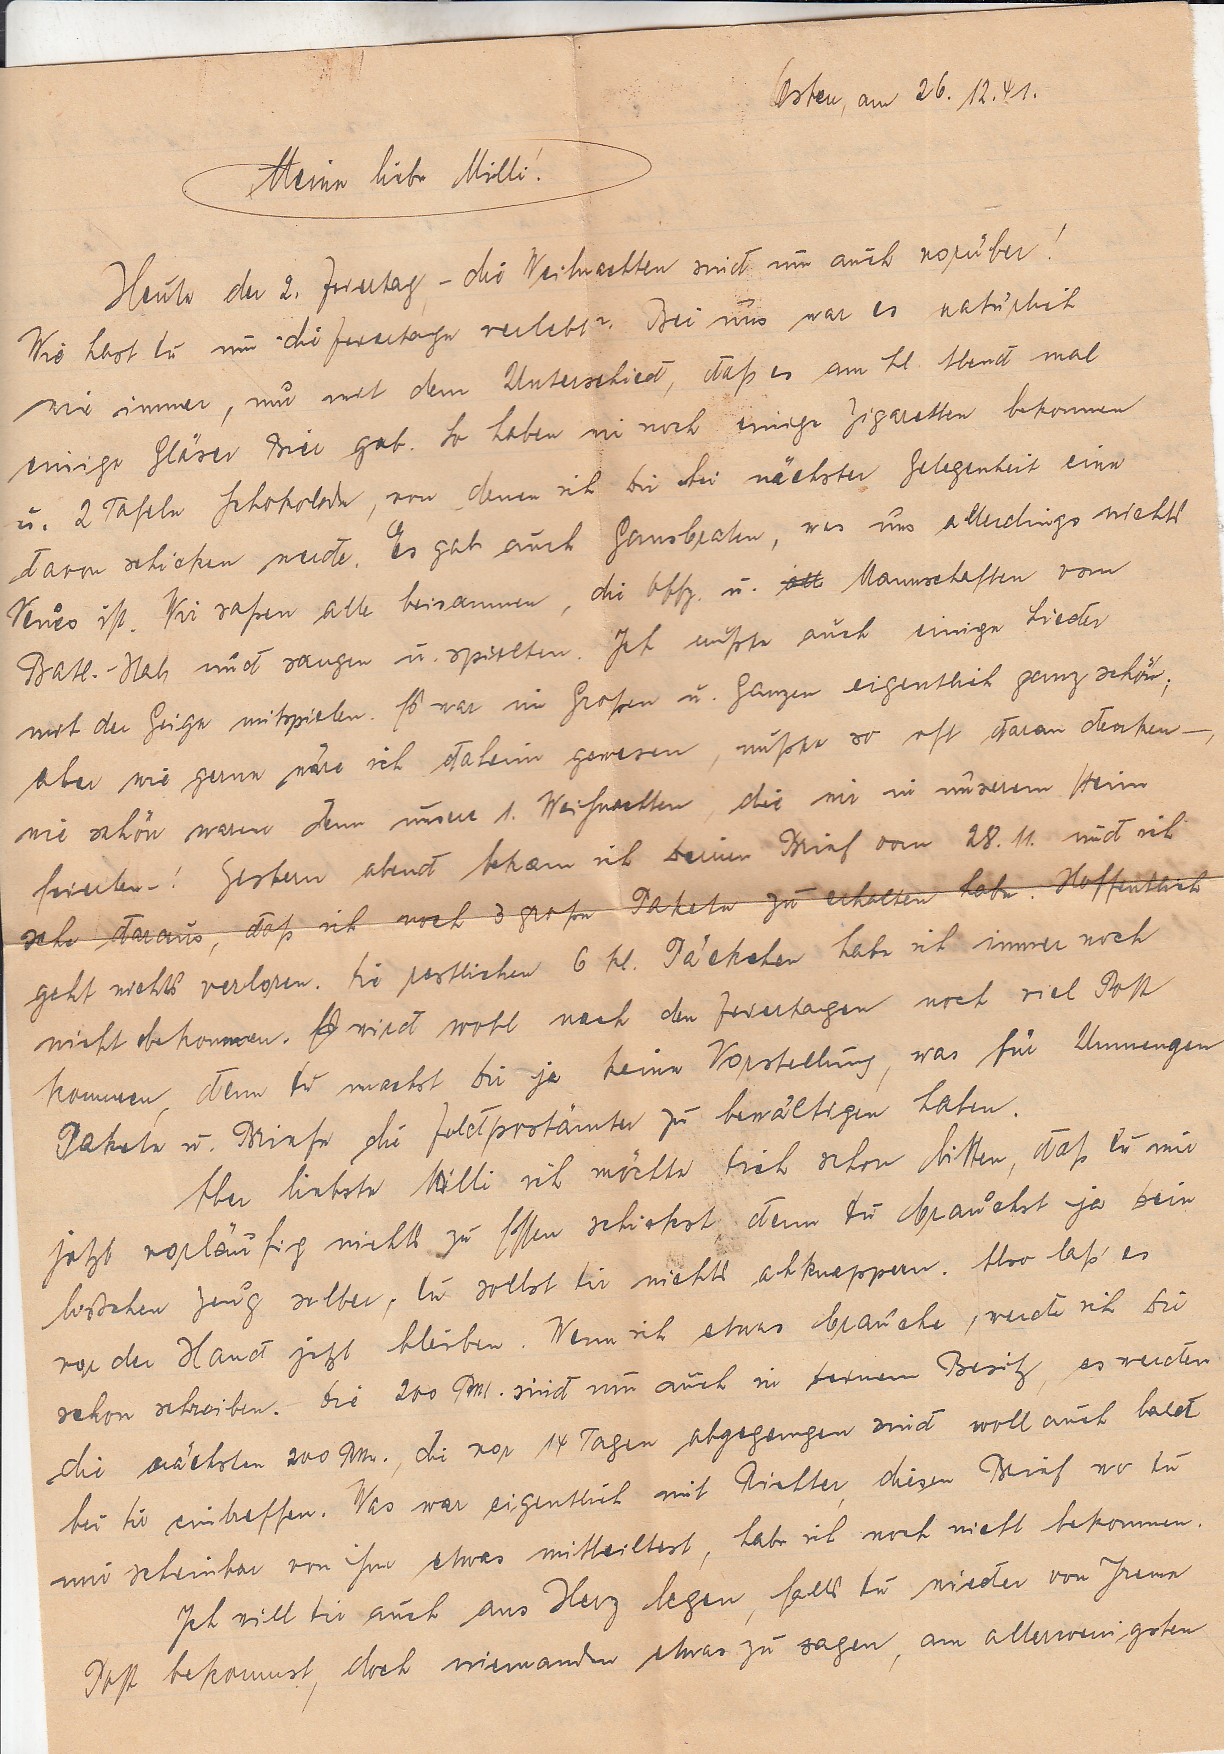 Osten, am 26. 12. 41.
Meine liebe Milli!
Heute der 2. Feiertag, – die Weihnachten sind nun auch vorüber!
Wie hast Du nun die Feiertage verlebt? Bei uns war es natürlich
wie immer, nur mit dem Unterschied, daß es am hl. Abend mal
einige Gläser Bier gab. So haben wir noch einige Zigaretten bekommen
u. 2 Tafeln Schokolade, von denen ich Dir bei nächster Gelegenheit eine
davon schicken werde. Es gab auch Gansbraten, was uns allerdings nichts
Neues ist. Wir saßen alle beisammen, die Offz. u. Mannschaften vom
Batl.-Stab und sangen u. spielten. Ich mußte auch einige Lieder
mit der Geige mitspielen. Es war im Großen u. Ganzen eigentlich ganz schön;
aber wie gerne wäre ich daheim gewesen, mußte so oft daran denken –,
wie schön waren denn unsere 1. Weihnachten, die wir in unserem Heim
feierten –! Gestern abend bekam ich Deinen Brief vom 28. 11. und ich
sehe daraus, daß ich noch 3 große Pakete zu erhalten habe. Hoffentlich
geht nichts verloren. Die restlichen 6 kl. Päckchen habe ich immer noch
nicht bekommen. Es wird wohl nach den Feiertagen noch viel Post
kommen, denn Du machst Dir ja keine Vorstellung, was für Unmengen
Pakete u. Briefe die Feldpostämter zu bewältigen haben.
Aber liebste Milli ich möchte Dich schon bitten, daß Du mir
jetzt vorläufig nichts zu Essen schickst denn Du brauchst ja Dein
bisschen Zeug selber, Du sollst Dir nichts abknappern. Also laß es
vor der Hand jetzt bleiben. Wenn ich etwas brauche, werde ich Dir
schon schreiben. – Die 200 RM. sind nun auch in Deinem Besitz, es werden
die nächsten 200 RM., die vor 14 Tagen abgegangen sind woll auch bald
bei Dir eintreffen. Was war eigentlich mit Richter, diesen Brief wo Du
mir scheinbar von ihm etwas mitteiltest, habe ich noch nicht bekommen.
Ich will Dir auch ans Herz legen, falls Du wieder von Irene
Post bekommst, doch niemanden etwas zu sagen, am allerwenigsten